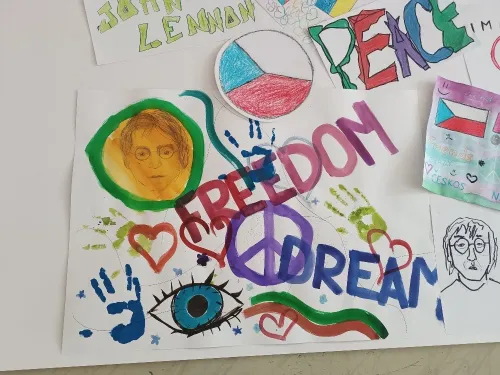 JOHN
LENNON
PEACE
IM
FREEDOM
DREAM
ČESKOS